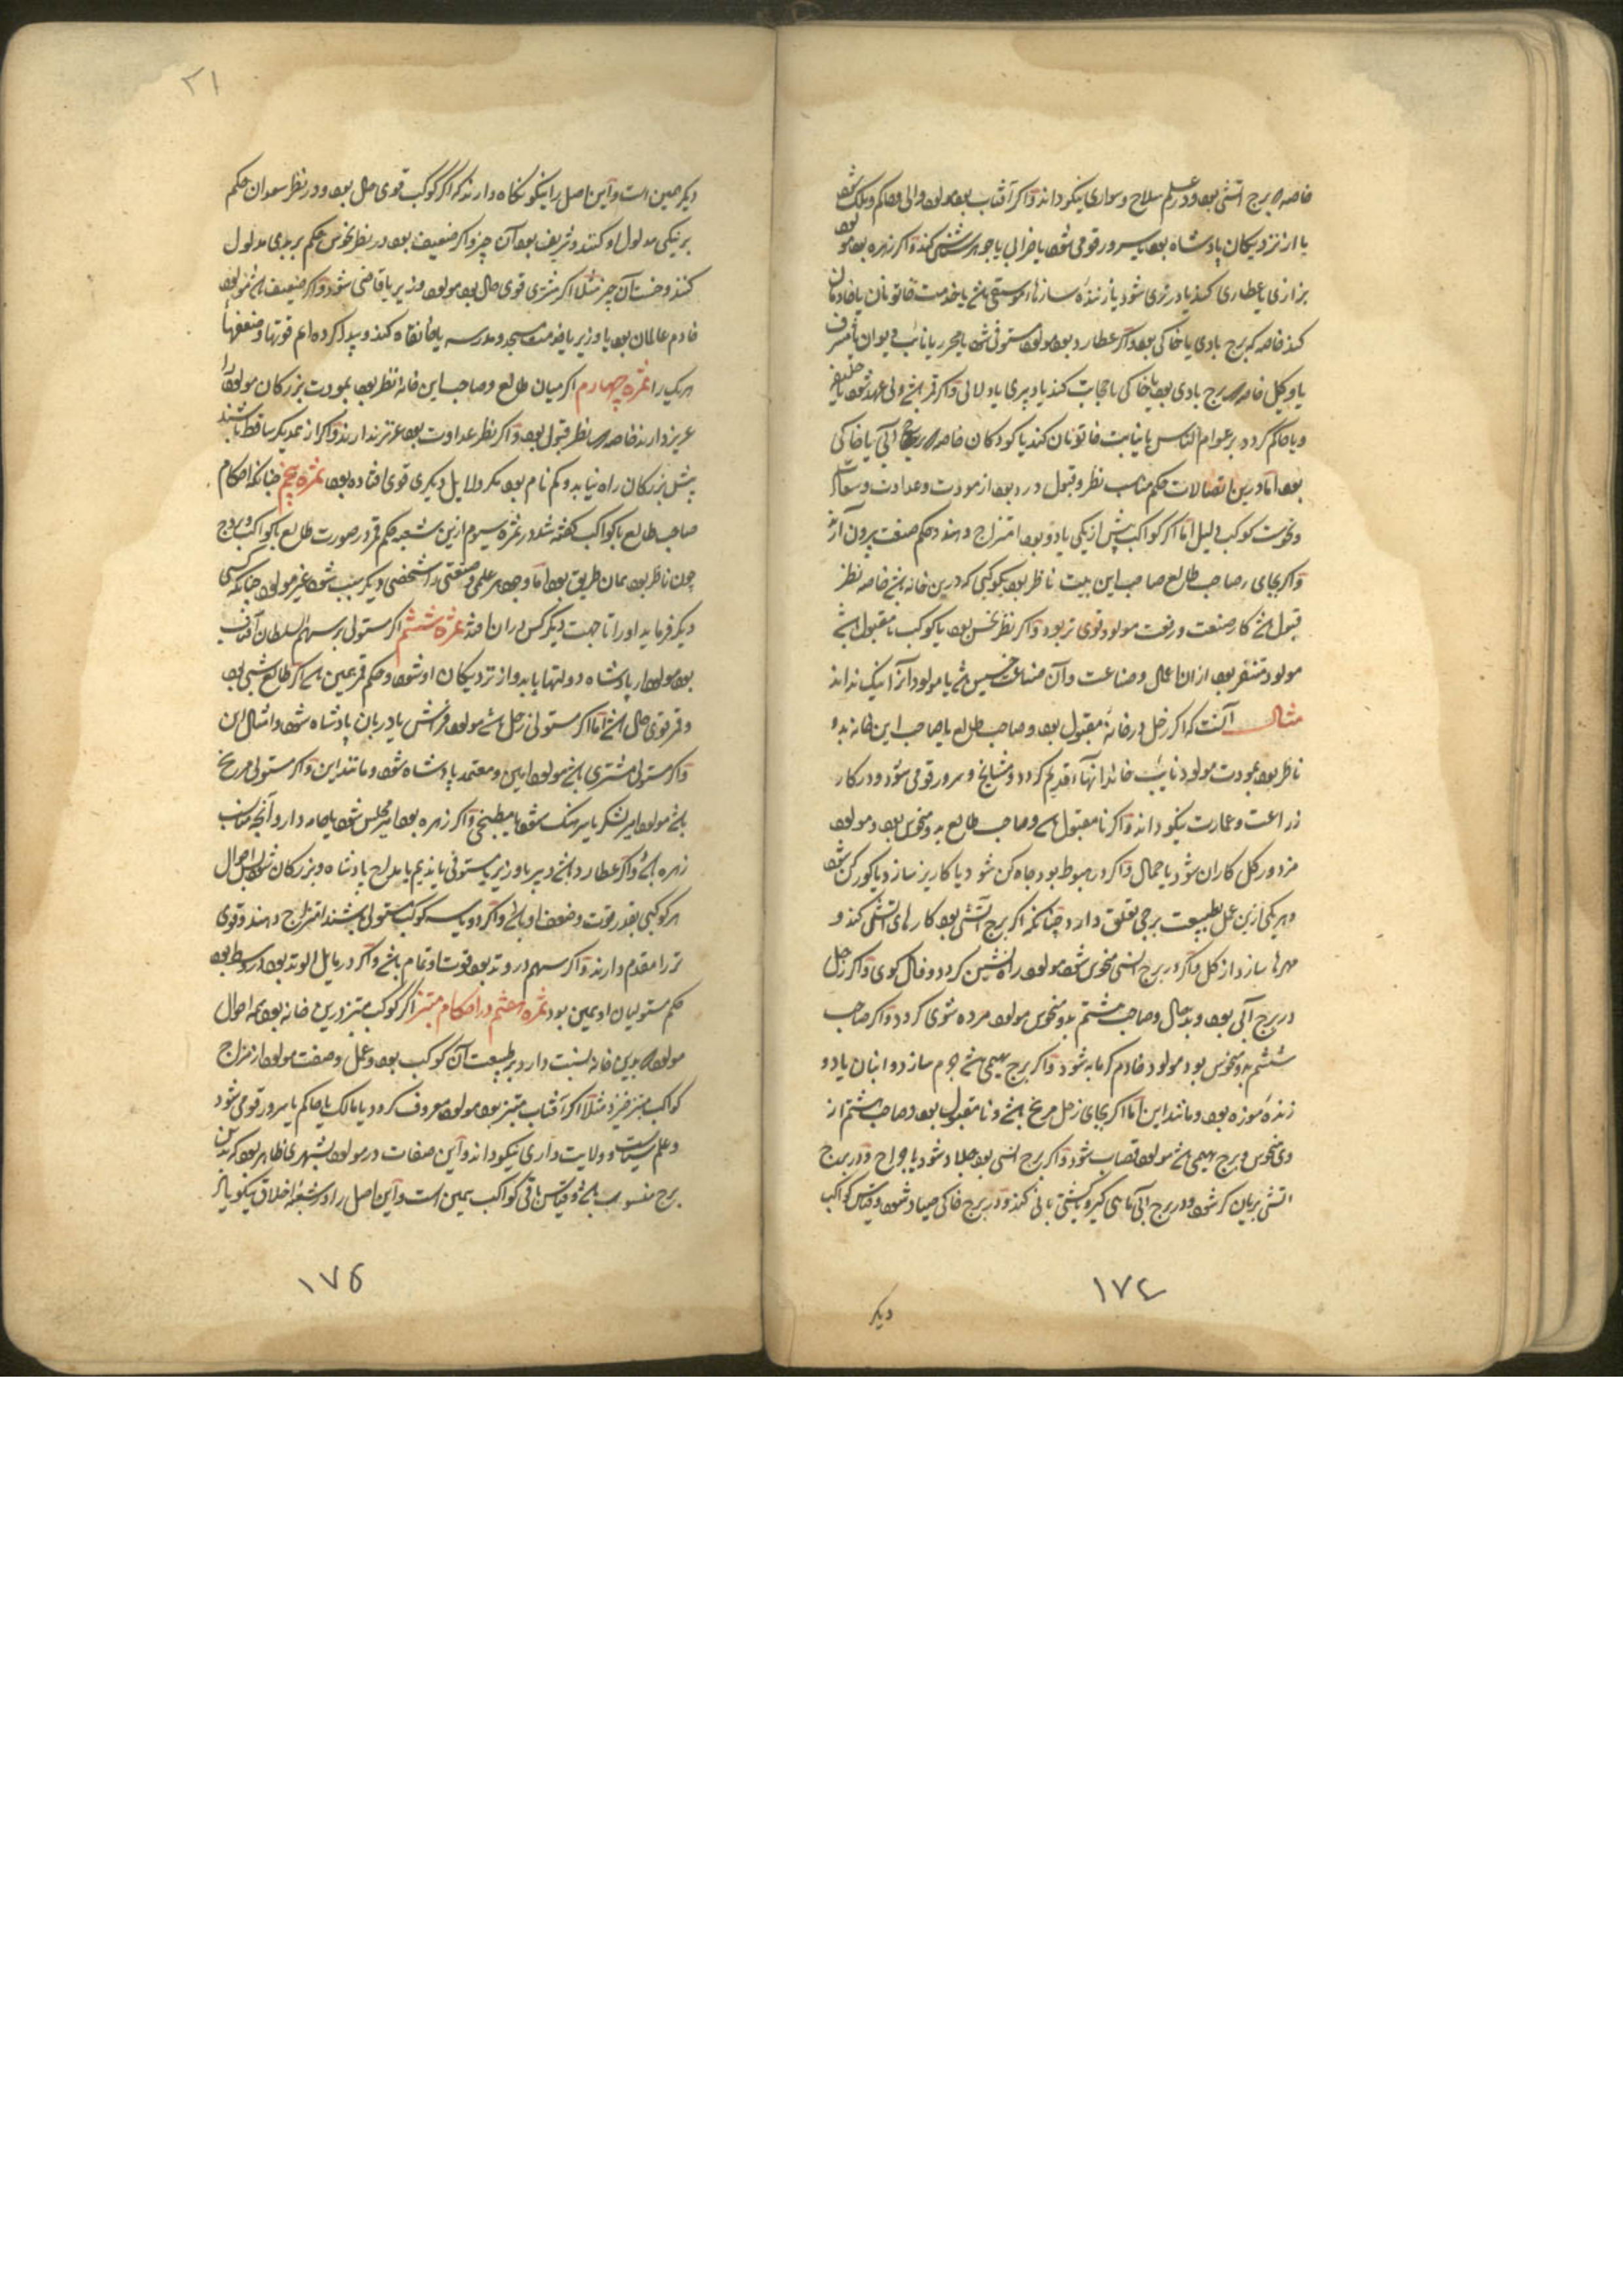 خاصه که برج آتشی بود و در علم سلاح و سواری نیکو داند و اگر آفتاب بود مولود والی و حاکم و ملک شود
یا از نزدیکان پادشاه بود یا سرور قومی شود یا ضرابی یا جوهر شناسی کند و اگر زهره بود مولود
بزازی یا عطاری کند یا درزی شود یا زننده سازها و موسیقی باشد یا خدمت خاتونان یا خادمان
کند خاصه که برج بادی یا خاکی بود و اگر عطارد بود مولود مستوفی شود یا محرر یا نائب دیوان یا مشرف
یا وکیل خاصه که برج بادی بود یا خاکی یا حجابت کند یا دبیری یا دلالی و اگر قمر باشد ولی عهد شود یا خلیفه
و یا حاکم گردد بر عوام الناس یا نیابت خاتونان کند یا کودکان خاصه که برج آبی یا خاکی
بود اما درین اتصالات حکم مناسب نظر و قبول و رد بود از مودت و عداوت و سعادت
و نحوست کوکب دلیل اما اگر کواکب بیش از یکی یا دو بود امتزاج دهند و حکم صنعت بیرون آرند
و اگر بجای صاحب طالع صاحب این بیت ناظر بود بکوکبی که درین خانه باشد خاصه نظر
قبول باشد کار صنعت و رفعت مولود قوی تر بود و اگر نظر نحس بود یا کوکب نامقبول باشد
مولود متنفر بود از ان اعمال و صناعت و آن صناعت خسیس باشد یا مولود آنرا نیک نداند
مثال آنست که اگر زحل در خانه مقبول بود و صاحب طالع یا صاحب این خانه بدو
ناظر بود بمودت مولود نایب خاندانهاء قدیم گردد و مشایخ و سرور قومی شود و در کار
زراعت و عمارت نیکو داند و اگر نامقبول باشد و صاحب طالع بد و منحوس بود مولود
مزدور گل کاران شود یا حمال و اگر در هبوط بود چاه کن شود یا کاریز ساز و یا گور کن شود
و هر یکی ازین عمل بطبیعت برجی تعلق دارد چنانکه اگر برج آتشی بود کارهای آتشی کند و
مهرها سازد از گل و اگر در برج انسی منحوس شود مولود راه نشین گردد و فال گوی و اگر زحل
در برج آبی بود و بد حال و صاحب هشتم بد و منحوس مولود مرده شوی گردد و اگر صاحب
ششم بد و منحوس بود مولود خادم گرمابه شود و اگر برج بهیمی باشد چرم سازد و انبان یا دو
زنده موزه بود و مانند این اما اگر بجای زحل مریخ باشد و نامقبول بود و صاحب هشتم از
وی منحوس و برج بهیمی باشد مولود قصاب شود و اگر برج انسی بود جلاد شود یا جراح و در برج
آتشی بریان گر شود و در برج آبی ماهی گیر و کشتی بانی کند و در برج خاکی صیاد شود و قیاس کواکب
۱۷۴
دیگر
۲۱
دیگر همین است و این اصل را نیکو نگاه دارند که اگر کوکب قوی حال بود و در نظر سعود آن حکم
بر نیکی مدلول او کنند و شریف بود آن چیز و اگر ضعیف بود در نظر نحوس حکم بر بدی مدلول
کنند و خست آن چیز مثلا اگر مشتری قوی حال بود مولود وزیر یا قاضی شود و اگر ضعیف باشد مولود
خادم عالمان بود یا وزیر یا خدمت مسجد و مدرسه یا خانقاه کند و پیدا کرده ام قوتها و ضعفهاء
هر یک را ثمره چهارم اگر میان طالع و صاحب این خانه نظر بود بمودت بزرگان مولود را
عزیز دارند خاصه که نظر قبول بود و اگر نظر عداوت بود عزتر ندارند و اگر از یکدیگر ساقط باشند
پیش بزرگان راه نیابد و گم نام بود مگر دلایل دیگری قوی افتاده بود ثمره پنجم چنانکه احکام
صاحب طالع با کواکب گفته شد در ثمره سیوم ازین شعبه حکم قمر در صورت طالع با کواکب و بروج
چون ناظر بود همان طریق بود اما وجود هر علمی و صنعتی را شخصی دیگر سبب شود غیر مولود چنانکه کسی
دیگر فرماید او را تا جهت دیگر کس در آن افتد ثمره ششم اگر مستولی بر سهم السلطان آفتاب
بود مولود از پادشاه دولتها یابد و از نزدیکان او شود و حکم قمر همین باشد اگر طالع شبی بود
و قمر قوی حال باشد اما اگر مستولی زحل باشد مولود فراش یا دربان پادشاه شود و امثال این
و اگر مستولی مشتری باشد مولود امین و معتمد پادشاه شود و مانند این و اگر مستولی مریخ
باشد مولود امیر لشکر یا سرهنگ شود یا مطبخی و اگر زهره بود امیر مجلس شود یا جامه دار و آنچه مناسب
زهره باشد و اگر عطارد باشد دبیر یا وزیر یا مستوفی یا ندیم یا مداح پادشاه و بزرگان شود احوال
هر کوکبی بقدر قوت و ضعف او باشد و اگر دو یا سه کوکب مستولی باشند امتزاج دهند و قوی
تر را مقدم دارند و اگر سهم در وتد بود قوت او تمام باشد و اگر در مایل الوتد بود اوسط بود
حکم مستولیان او همین بود ثمره هفتم در احکام مبتز اگر کوکب مبتز درین خانه بود همه احوال
مولود که بدین خانه نسبت دارد بر طبیعت آن کوکب بود و عمل و صفت مولود از مزاج
کواکب مبتز خیزد مثلا اگر آفتاب مبتز بود مولود معروف گردد یا مالک یا حاکم یا سرور قومی شود
و علم سیاست و ولایت داری نیکو داند و این صفات در مولود بشهری ظاهر بود که بدین
برج منسوب باشد و قیاس باقی کواکب همین است و این اصل را در شعبه اخلاق نیکو یاد
۱۷۵